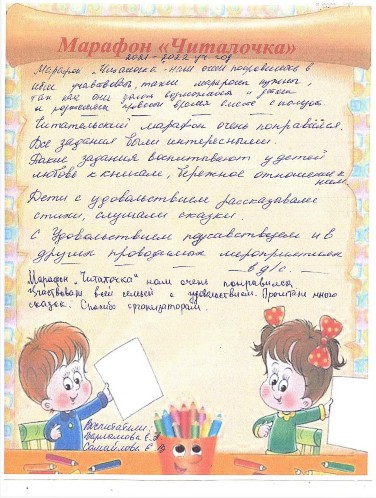 Марафон «Читалочка»
2021-2022 уч. год
Марафон „Читалочка - нам очень понравилось в
нём участвовать, такие марафоны нужны,
так как они дают возможность и детям
и родителям провести время вместе с пользой
Читательский марафон очень понравился.
Все задания были интересными.
Такие задания воспитывают у детей
любовь к книгам, бережное отношение к
ним.
Дети с удовольствием рассказывали
стихи, слушали сказки.
С удовольствием поучаствуем и в
других проводимых мероприятиях
в д/с.
Марафон „Читалочка" нам очень понравился
Участвовали всей семьёй с удовольствием. Прочитали много
сказок. Спасибо организаторам.
Воспитатели:
Варламова Е.
Самайлова Е.